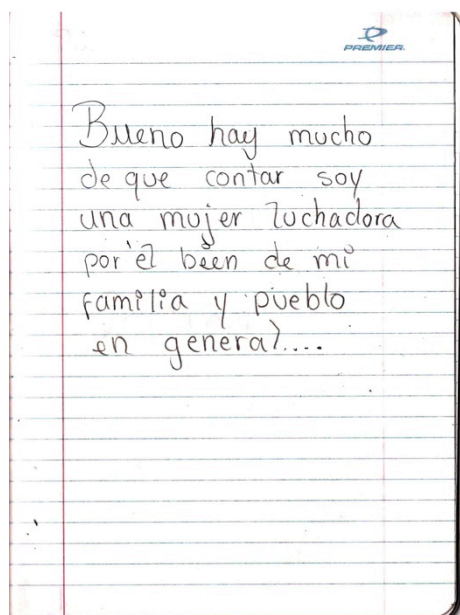 PREMIER
Bueno hay mucho
de que contar soy
una mujer luchadora
por él been de mi
familia y pueblo
en general....